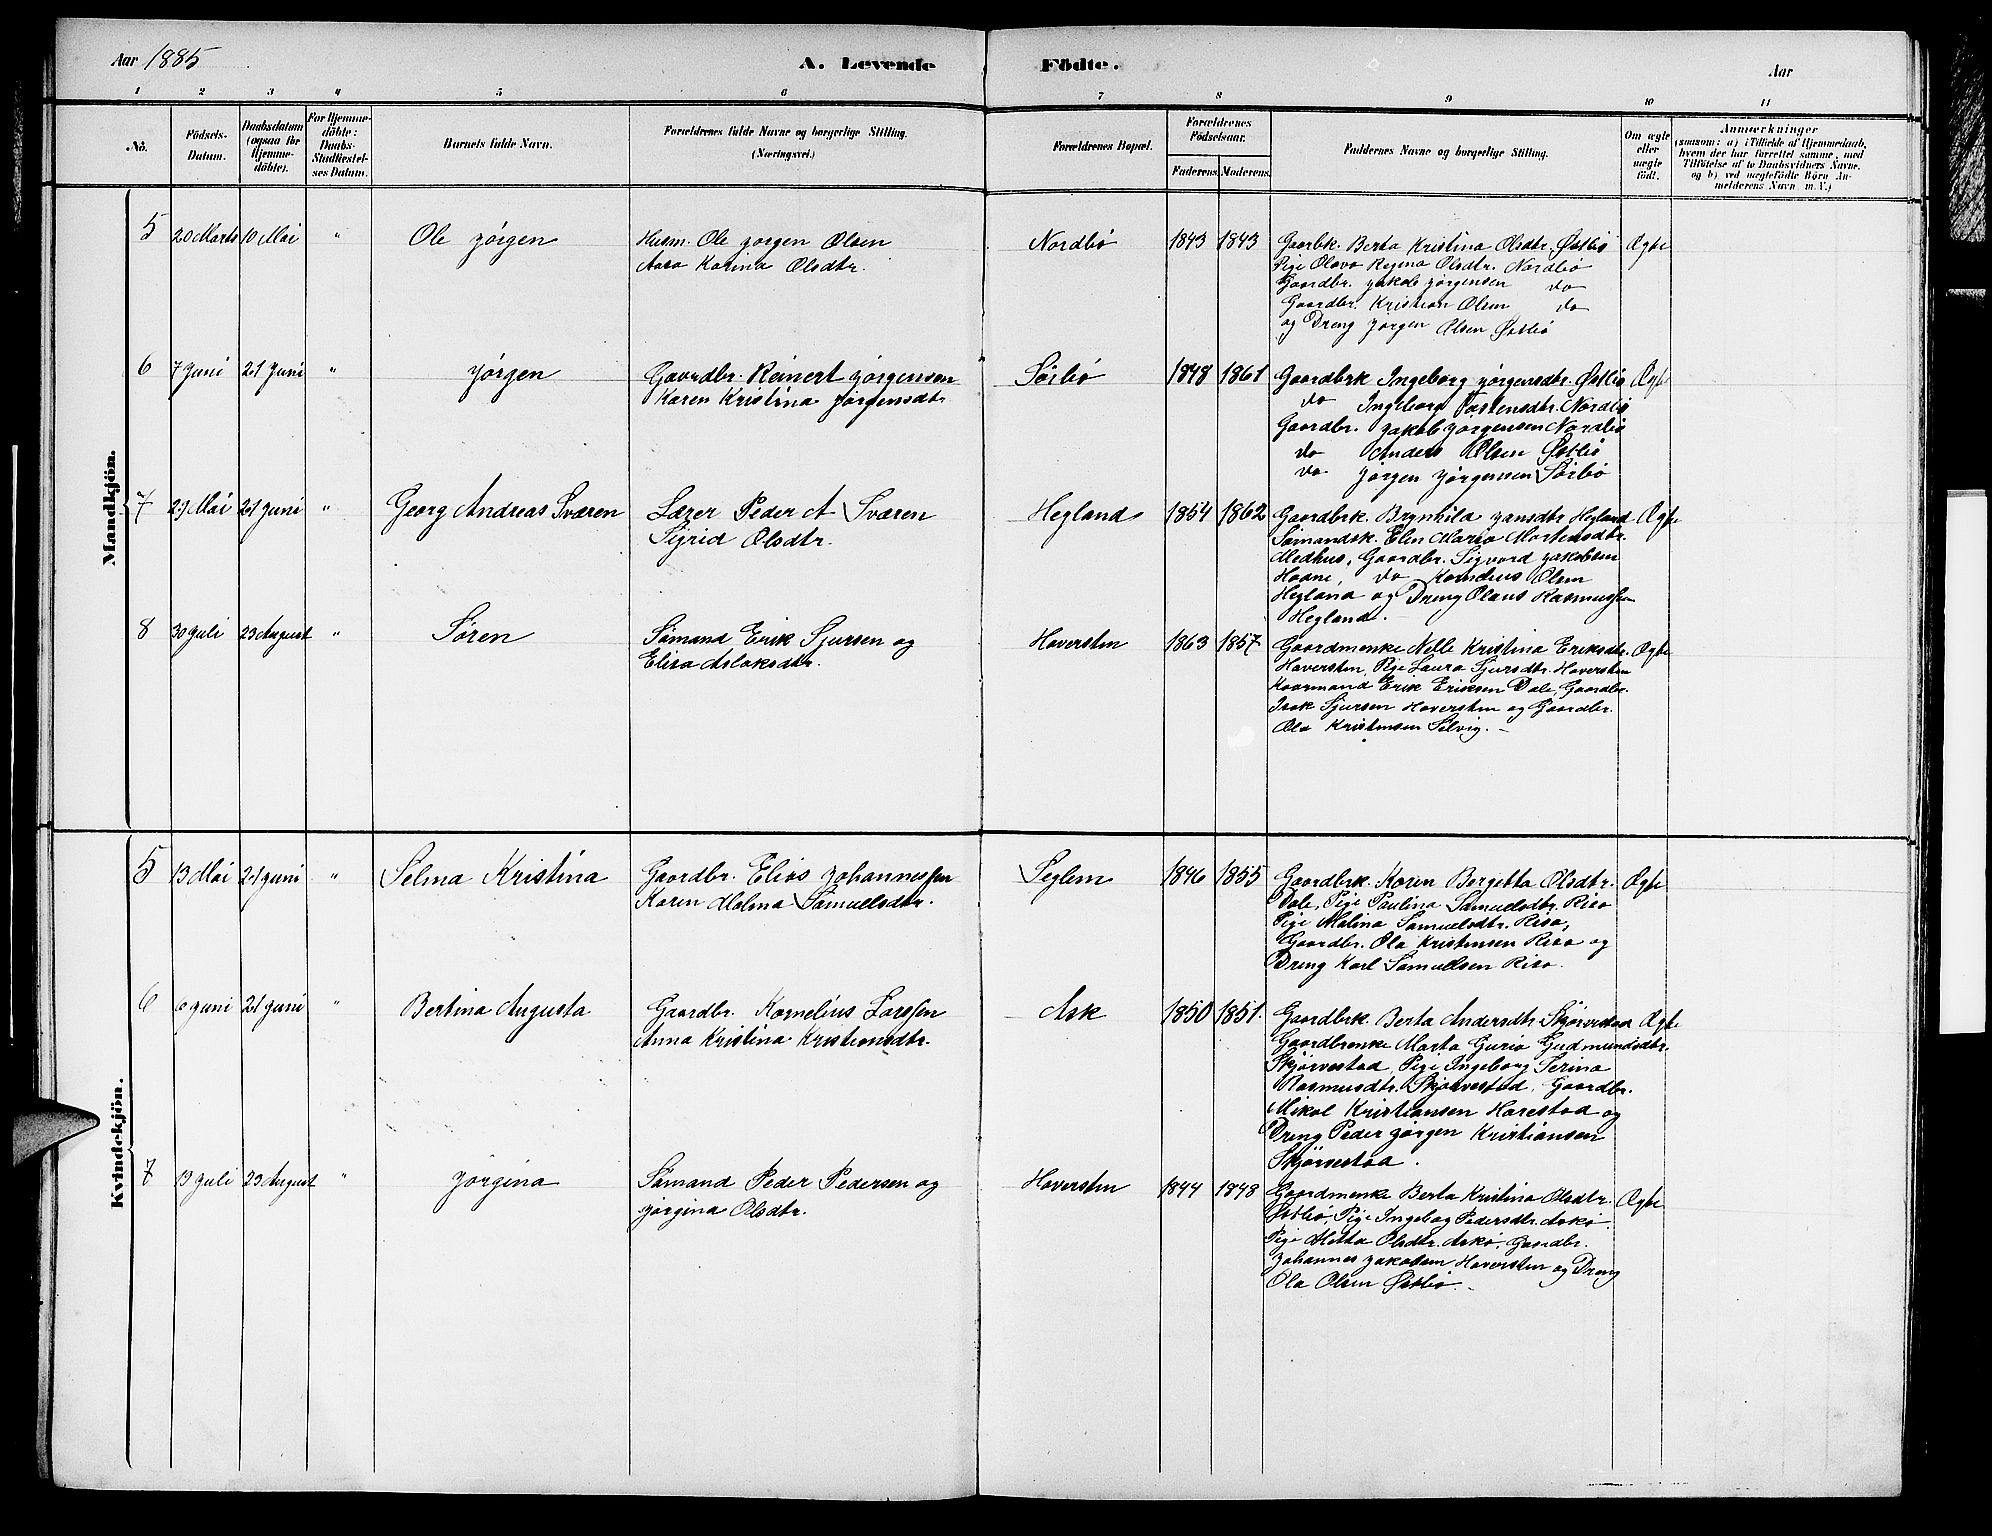 Aar 1885
A. Levende Födte.
Aar
1 2 3 4 5 6 7 8 9 10 11
No.
Födsels-Datum.
Daabsdatum (ogsaa for Hjemme-döbte).
For Hjemme-döbte: Daabs-Stadfæstel-ses Datum.
Barnets fulde Navn.
Forældrenes fulde Navne og borgerlige Stilling. (Næringsvei.)
Forældrenes Bopæl.
Forældrenes Födselsaar.
Faderens. Moderens.
Faddernes Navne og borgerlige Stilling.
Om ægte eller uægte födt.
Anmærkninger
(saasom: a) i Tilfælde af Hjemmedaab, hvem der har forrettet samme, med Tilföielse af to Daabsvidners Navne, og b) ved uægtefödte Börn An-melderens Navn m. V.)
Mandkjön.
5 20 Marts 10 Mai " Ole Jörgen
Husm. Ole Jörgen Olsen
Aasa Karina Olsdtr.
Nordbö 1843 1843
Gaardbk. Berta Kristina Olsdtr. Östbö
Pige Olava Regina Olsdtr. Nordbö
Gaardbr. Jakob Jörgensen do
Gaardbr. Kristian Olsen do
og Dreng Jörgen Olsen Östbö
Ægte
6 7 Juni 21 Juni " Jörgen
Gaardbr. Reinert Jörgensen
Karen Kristina Jörgensdtr
Sörbö 1848 1861
Gaardbrk Ingeborg Jörgensdtr. Östbö
do Ingeborg Tostensdtr. Nordbö
Gaardbr. Jakob Jörgensen Nordbö
do Anders Olsen Östbö
do Jörgen Jörgensen Sörbö
Ægte
7 29 Mai 21 Juni " Georg Andreas Sværen
Lærer Peder A Sværen
Sigrid Olsdtr.
Hegland 1854 1862
Gaardbrk. Brynhild Jansdtr Hegland
Sömandsk. Elen Maria Mortensdtr.
Medhus, Gaardbr. Sigvard Jakobsen
Haane, do Kornelius Olsen
Hegland og Dreng Olaus Rasmussen
Hegland.
Ægte
8 30 Juli 23 August " Sören
Sömand Erik Sjursen og
Elisa Aslaksdtr.
Haversten 1863 1857
Gaardmenke Nelle Kristina Eriksdtr.
Haversten, Pige Laura Sjursdtr. Haversten
Kaarmand Erik Eriksen Dale, Gaardbr.
Isak Sjursen Haversten og Gaardbr.
Ola Kristensen Selvig.
Ægte
Kvindekjön.
5 13 Mai 21 Juni " Selma Kristina
Gaardbr. Elias Johannessen
Karen Malena Samuelsdtr.
Seglem 1846 1855
Gaardbrk. Karen Bergetta Olsdtr.
Dale, Pige Paulina Samuelsdtr. Risa
Pige Malina Samuelsdtr. Risa,
Gaardbr. Ola Kristensen Risa og
Dreng Karl Samuelsen Risa.
Ægte
6 6 Juni 21 Juni " Bertina Augusta
Gaardbr. Kornelius Larssen
Anna Kristina Kristiansdtr.
Ask 1850 1851.
Gaardbrk. Berta Andersdtr Skjörvestad
Gaardbrenke Marta Guria Gudmundsdtr.
Skjörvestad, Pige Ingeborg Serina
Rasmusdtr. Skjörvestad, Gaardbr.
Mikal Kristiansen Harestad og
Dreng Peder Jörgen Kristiansen
Skjörvestad.
Ægte
7 19 Juli 23 August " Jörgina
Sömand Peder Pedersen og
Jörgina Olsdtr.
Haversten 1844 1848
Gaardmenke Berta Kristina Olsdtr.
Östbö, Pige Ingeborg Pedersdtr. Askö.
Pige Metta Olsdtr. Askö, Gaardbr.
Johannes Jakobsen Haversten og Dreng
Ola Olsen Östbö.
Ægte